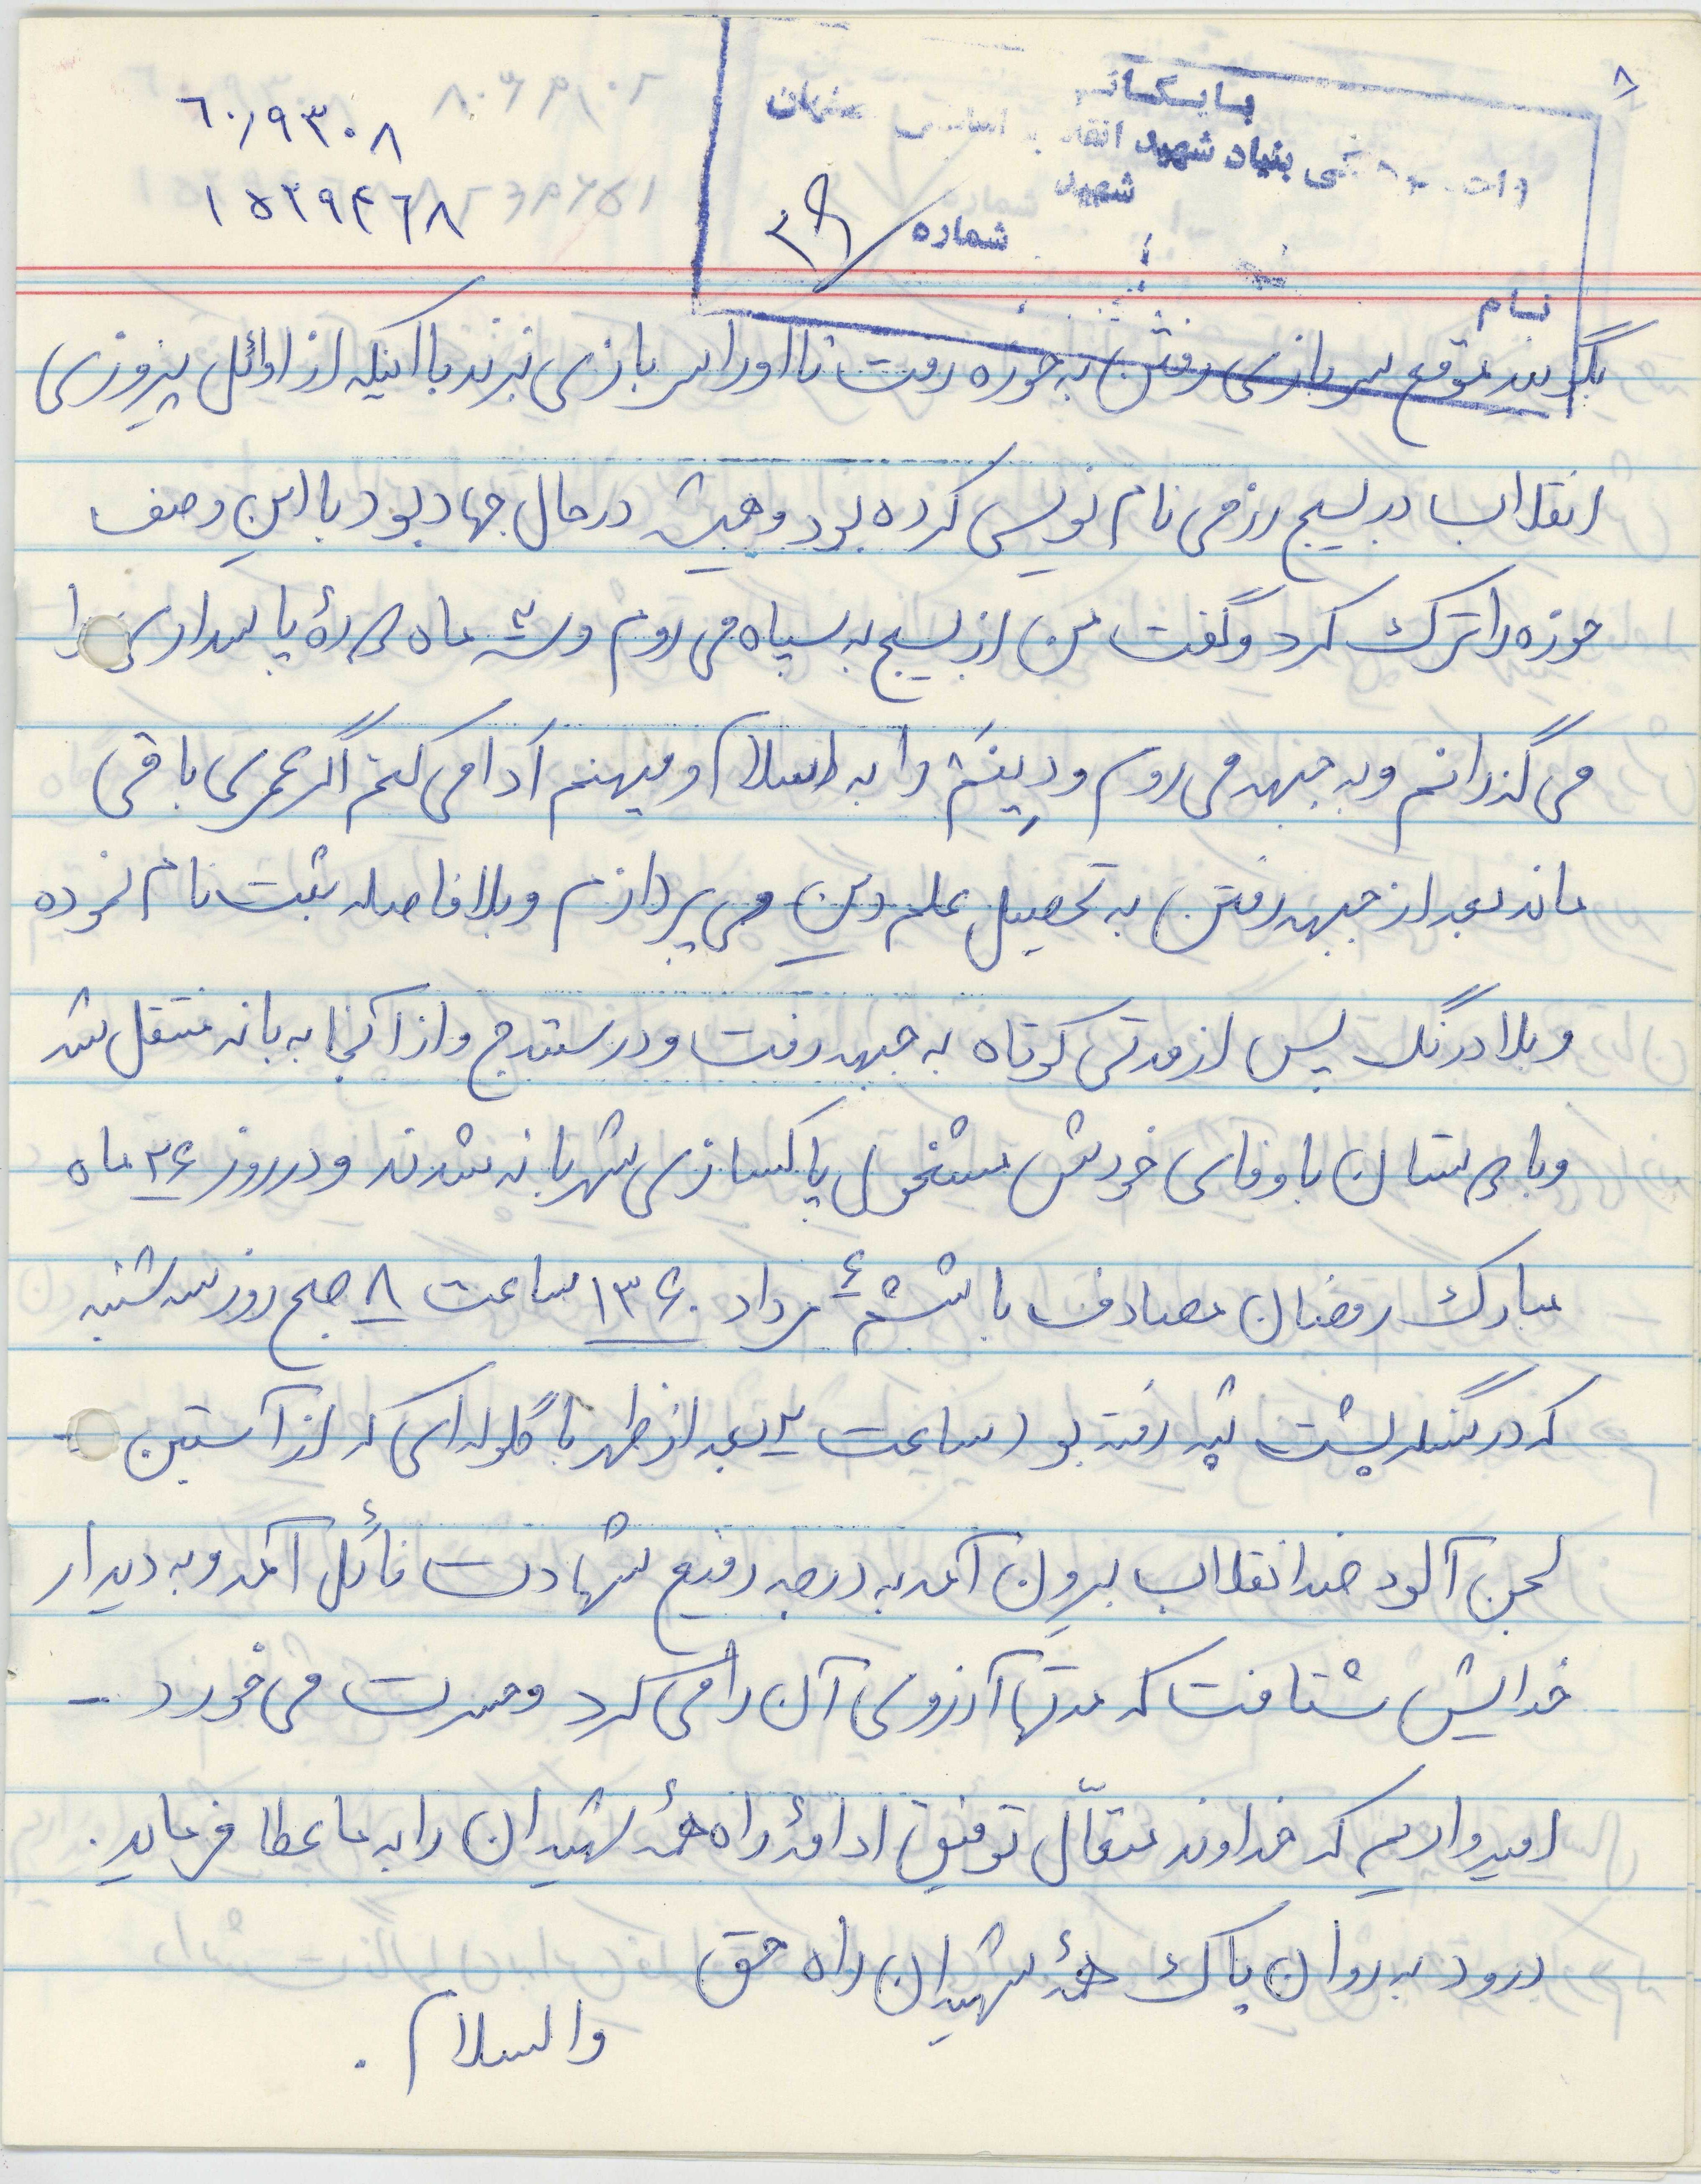 ۸
بایگانی
بنیاد شهید انقلاب اسلامی
شهید
شماره ۲۹/
نام
۶۰/۹۳۰۸
۱۵۲۹۴۶۸
بگویند موقع سربازی رفتن به حوزه رفت تا او را سربازی نبرند با اینکه از اوائل پیروزی
انقلاب در بسیج رزمی نام نویسی کرده بود و همیشه در حال جهاد بود با این وصف
حوزه را ترک کرد و گفت من از بسیج به سپاه می روم و سه ماه دورهٔ پاسداری را
می گذرانم و به جبهه می روم و دینم را به اسلام و میهنم اَدا می کنم اگر عمری باقی
ماند بعد از جبهه رفتن به تحصیل علم دین می پردازم و بلافاصله ثبت نام نموده
و بلادرنگ پس از مدتی کوتاه به جبهه رفت و در سنندج و از آنجا به بانه منتقل شد
و با دوستان با وفای خودش مشغول پاکسازی شهر بانه شدند و در روز ۲۶ ماه
مبارک رمضان مصادف با ششم ۶ مرداد ۱۳۶۰ ساعت ۸ صبح روز سه شنبه
که در سنگر پشت تپه رفته بود ساعت ۲ بعد از ظهر با گلوله ای که از آستین -
لجن آلود ضد انقلاب بیرون آمد به درجه رفیع شهادت نائل آمد و به دیدار
خدایش شتافت که مدتها آرزوی آن را می کرد و حسرت می خورد -
امیدواریم که خداوند متعال توفیق ادامهٔ راه همهٔ شهیدان را به ما عطا فرماید.
درود به روان پاک همهٔ شهیدان راه حق
والسلام .